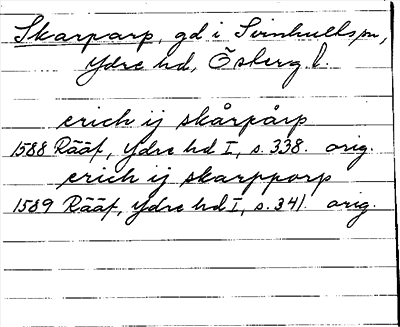 Skarparp, gd i Svinhults sn,
Ydre hd, Österg. l.
erich ij skårpårp
1588 Rääf, Ydre hd I, s. 338. orig.
erich ij skarpporp
1589 Rääf, Ydre hd I, s. 341. orig.